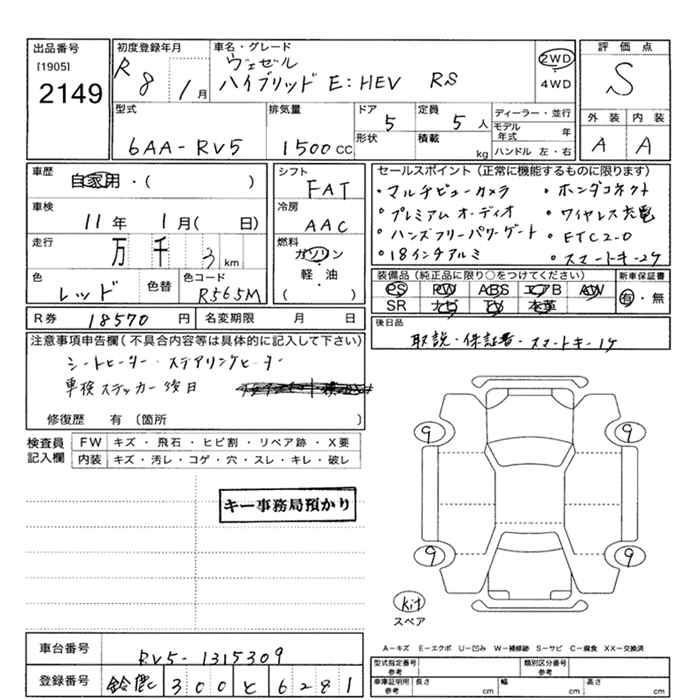 出品番号 初度登録年月 車名・グレード 評価点
[1905] 2149
R 8 / 1月
ヴェゼル
ハイブリッド E:HEV RS
2WD
4WD
S
型式 排気量 ドア 定員 ディーラー・並行
6AA-RV5 1500cc 5 5人
モデル年式 年
形状 積載 kg ハンドル 左・右
外装 内装
A A
車歴 自家用・( )
シフト FAT
車検 11年 1月( 日)
冷房 AAC
走行 万 千 3 km
燃料 ガソリン
軽・油
( )
色 レッド 色替 色コード R565M
セールスポイント (正常に機能するものに限ります)
・マルチビューカメラ ・ホンダコネクト
・プレミアムオーディオ ・ワイヤレス充電
・ハンズフリーパワーゲート ・ETC2.0
・18インチアルミ ・スマートキー2ケ
装備品(純正品に限り○をつけてください) 新車保証書
PS PW ABS エアB AW
SR ナビ TV 本革
有・無
R券 18570円 名変期限 月 日
後日品
取説・保証書・スマートキー1ケ
注意事項申告欄(不具合内容等は具体的に記入して下さい)
シートヒーター・ステアリングヒーター
車検ステッカー後日
修復歴 有 〔箇所 〕
検査員記入欄
FW キズ・飛石・ヒビ割・リペア跡・X要
内装 キズ・汚レ・コゲ・穴・スレ・キレ・破レ
キー事務局預かり
9 9
9 9
kit
スペア
A-キズ E-エクボ U-凹み W-補修跡 S-サビ C-腐食 XX-交換済
車台番号 RV5-1315309
登録番号 鈴鹿 300 と 6281
型式指定番号 類別区分番号
参考 参考
車庫証明用 長さ 幅 高さ
参考 cm cm cm